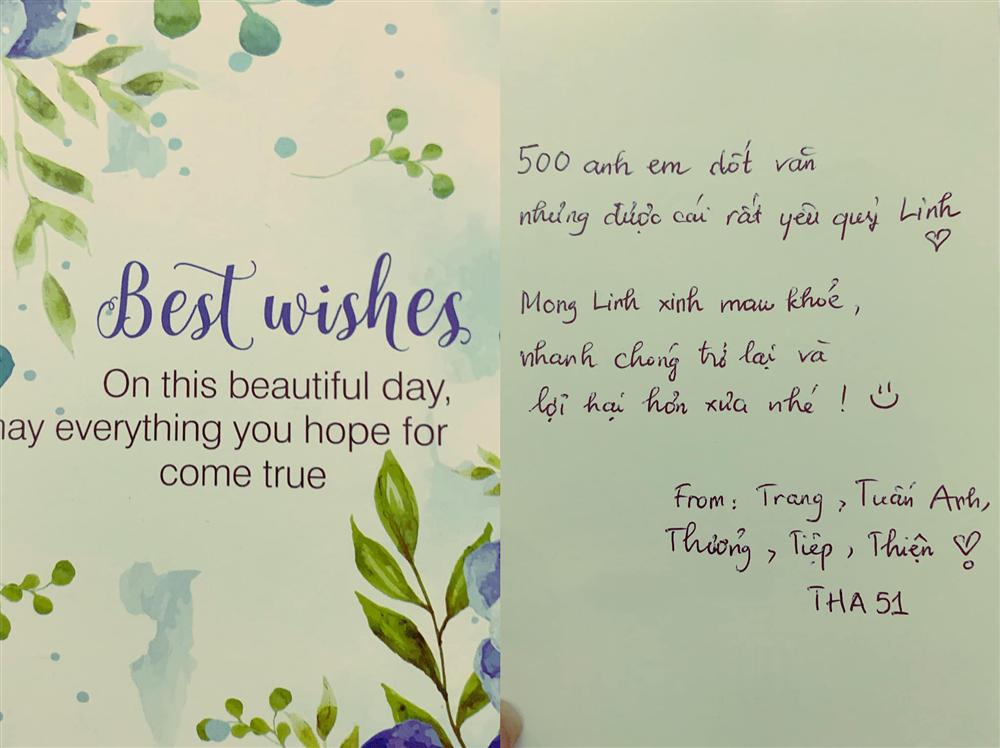 Best wishes
On this beautiful day,
may everything you hope for
come true
500 anh em dốt văn
nhưng được cái rất yêu quý Linh
Mong Linh xinh mau khoẻ,
nhanh chóng trở lại và
lợi hại hơn xưa nhé !
From: Trang, Tuấn Anh,
Thưởng, Tiệp, Thiện
THA 51